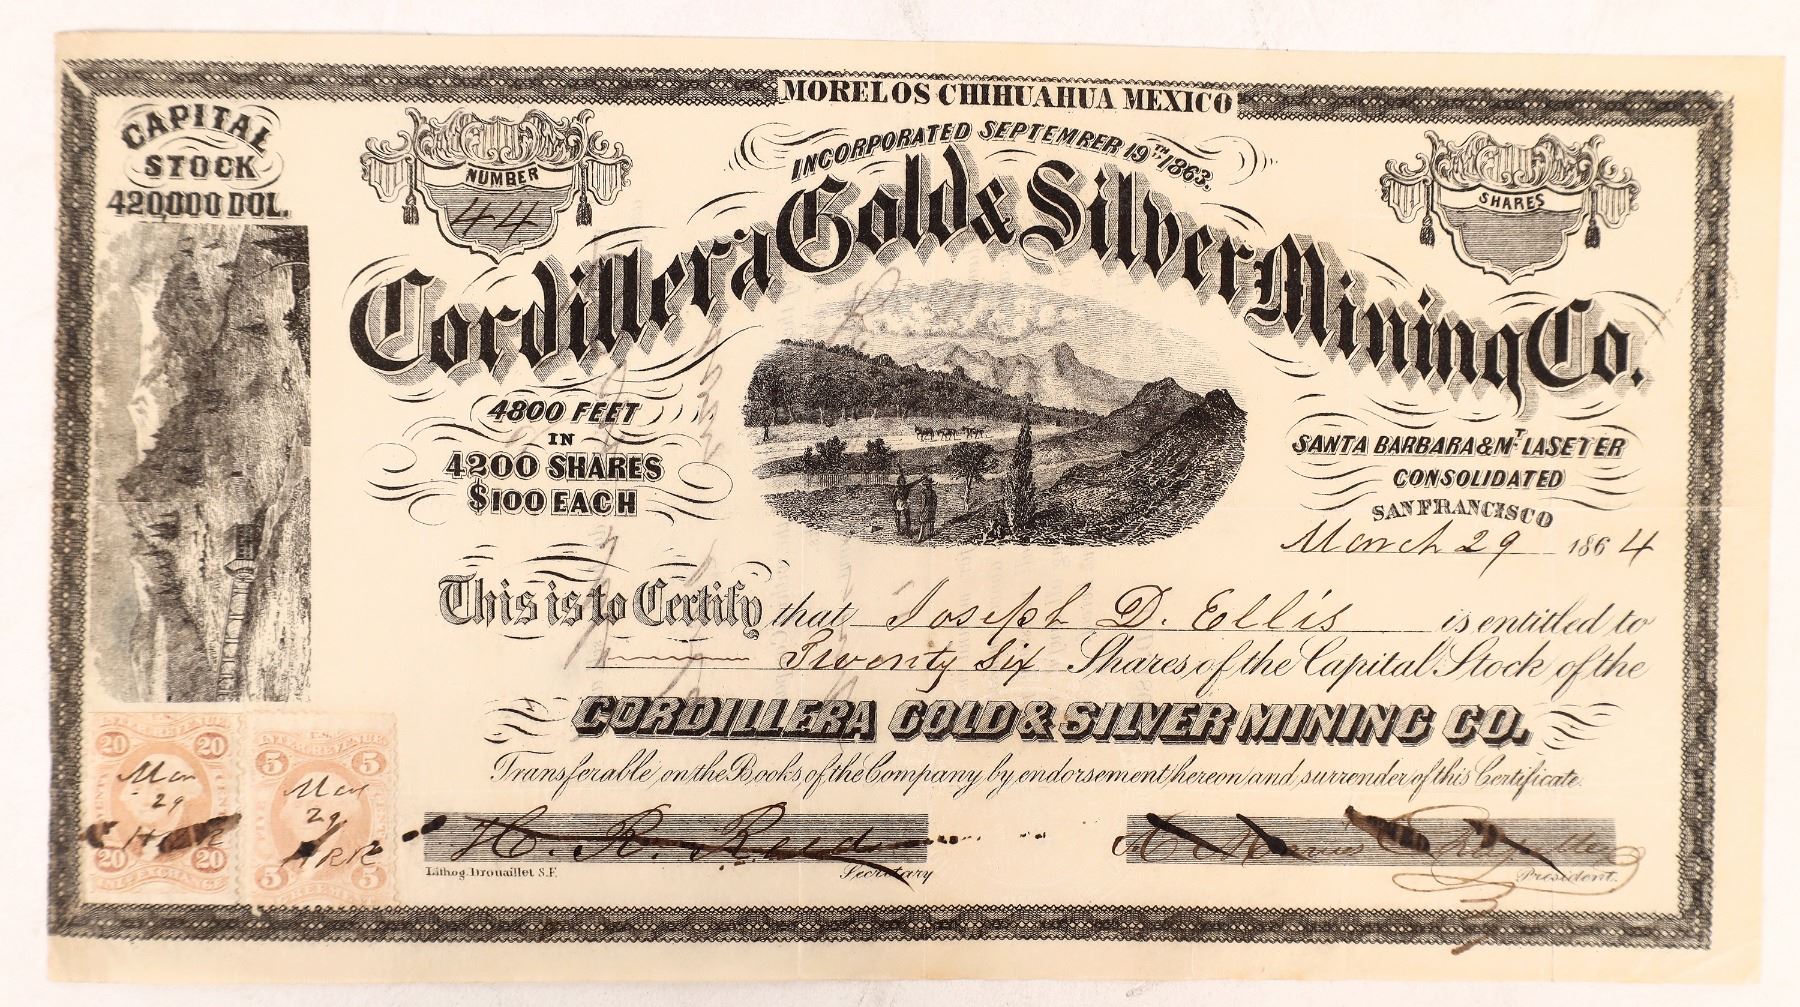 MORELOS CHIHUAHUA MEXICO
INCORPORATED SEPTEMBER 19TH 1863.
CAPITAL
STOCK
420,000 DOL.
NUMBER
44
SHARES
Cordillera Gold & Silver Mining Co.
4800 FEET
IN
4200 SHARES
$100 EACH
SANTA BARBARA & MT LASETER
CONSOLIDATED
SAN FRANCISCO
March 29 1864
This is to Certify that Joseph D. Ellis is entitled to
Twenty Six Shares of the Capital Stock of the
CORDILLERA GOLD & SILVER MINING CO.
Transferable on the Books of the Company by endorsement hereon and surrender of this Certificate.
20 20
Mar
29
HRR
20 20
U.S.
INTER. REVENUE
5 5
Mar
29
HRR
5 5
H. R. Reed
Lithog. Drouaillet S.F.
Secretary
President.